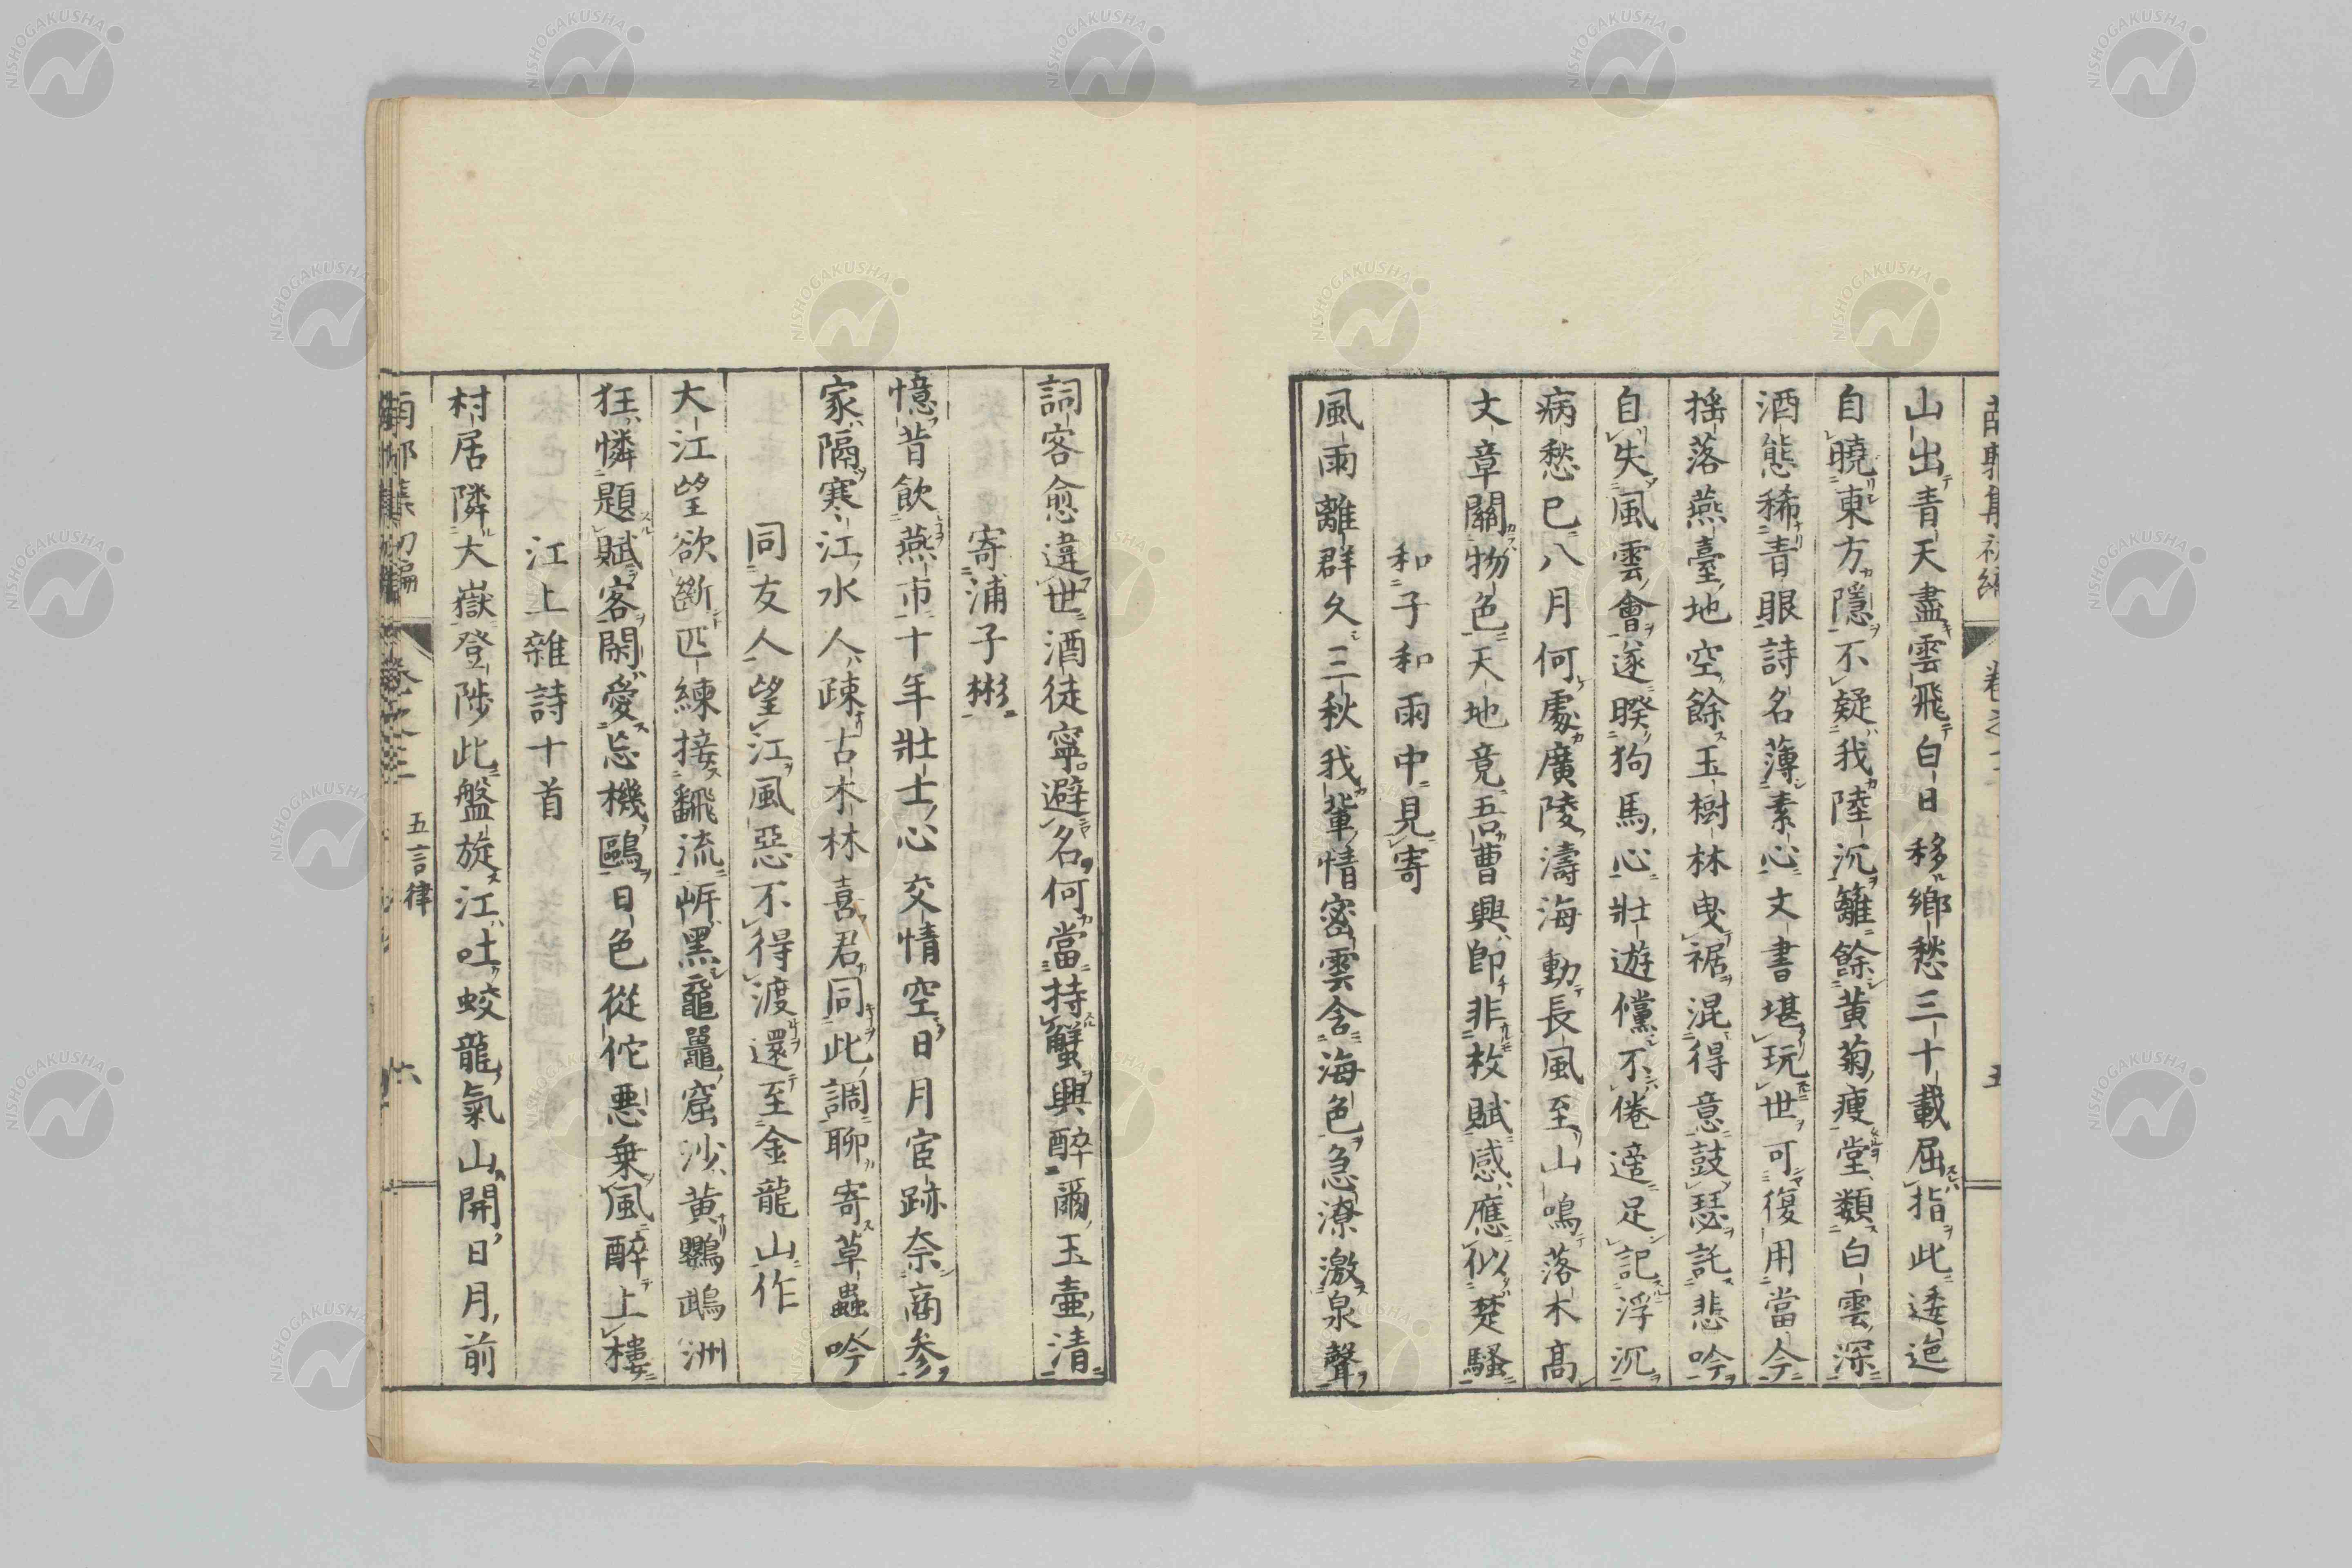 山出青天盡雲飛白日移鄉愁三十載屈指此逶迤
自曉東方隱不疑我陸沉籬餘黃菊瘦堂類白雲深
酒態稀青眼詩名薄素心文書堪玩世可復用當今
搖落燕臺地空餘玉樹林曳裾混得意鼓瑟託悲吟
自失風雲會遂睽狗馬心壯遊儻不倦遊足記浮沉
病愁已八月何處廣陵濤海動長風至山鳴落木高
文章關物色天地竟吾曹興卽非枚賦感應似楚騷
和子和雨中見寄
風雨離群久三秋我輩情密雲含海色急潦激泉聲
詞客愈違世酒徒寧避名何當持蟹興醉爾玉壺清
寄浦子彬
憶昔飲燕市十年壯士心交情空日月宦跡奈商參
家隔寒江水人疎古木林喜君同此調聊寄草蟲吟
同友人望江風惡不得渡還至金龍山作
大江望欲斷匹練接飜流岓黑黿鼉窟沙黃鸚鵡洲
狂憐題賦客閑愛忘機鷗日色從佗惡乗風醉上樓
江上雜詩十首
村居隣大嶽登陟此盤旋江吐蛟龍氣山開日月前
五言律
六
NISHOGAKUSHA